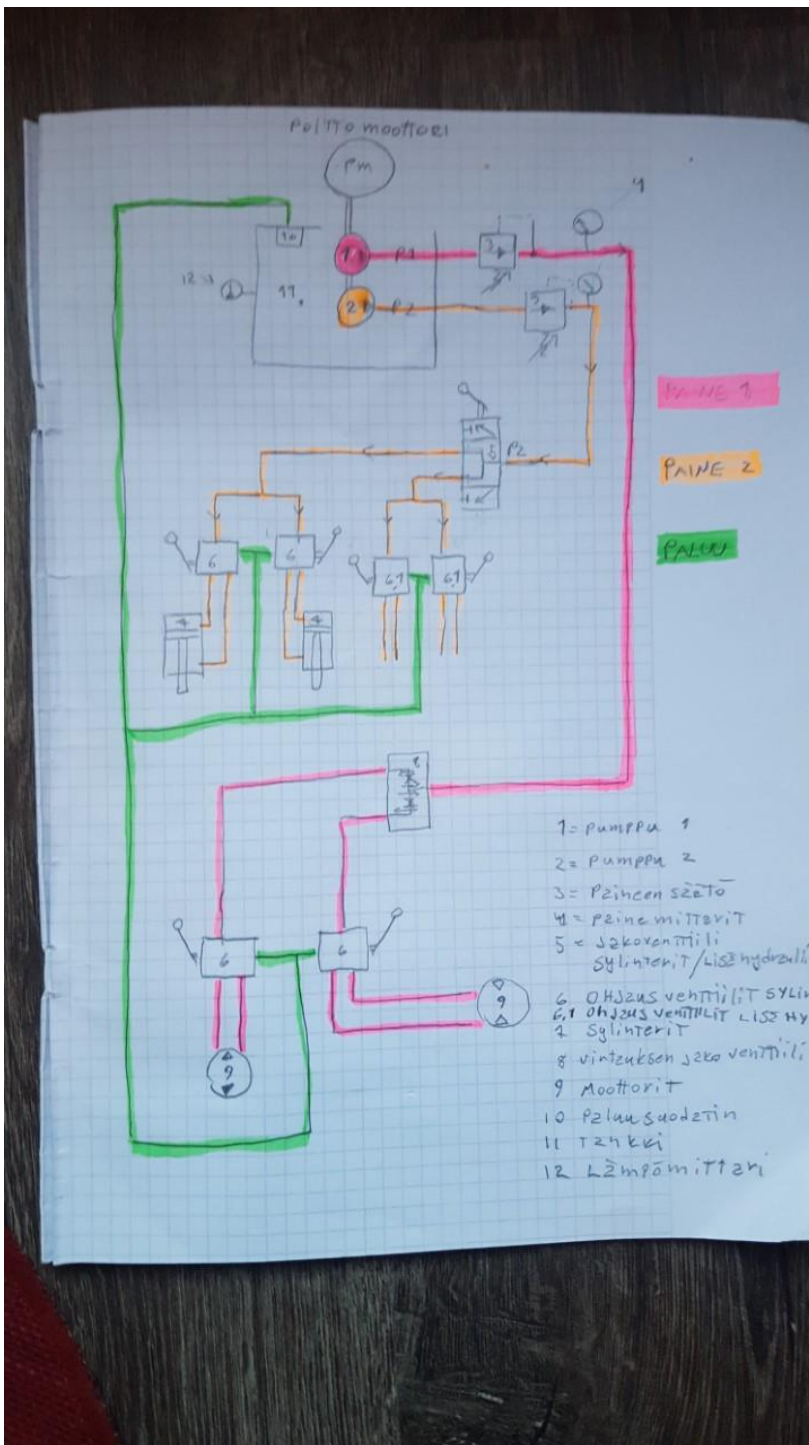 POLTTO MOOTTORI
PM
4
10
1
P1
3
12
11.
2
P2
3
PAINE 1
5
P2
PAINE 2
PALUU
6
6
6.1
6.1
7
7
8
1 = PUMPPU 1
2 = PUMPPU 2
3 = Paineen säätö
4 = paine mittarit
5 = Jakoventtiili
Sylinterit/Lisä hydrauli
6 OHJaus venttiilit SYLIN
6.1 OHJaus venttiilit LISÄ HY
7 Sylinterit
8 virtauksen jako venttiili
9 Moottorit
10 Paluu suodatin
11 Tankki
12 Lämpömittari
6
6
9
9